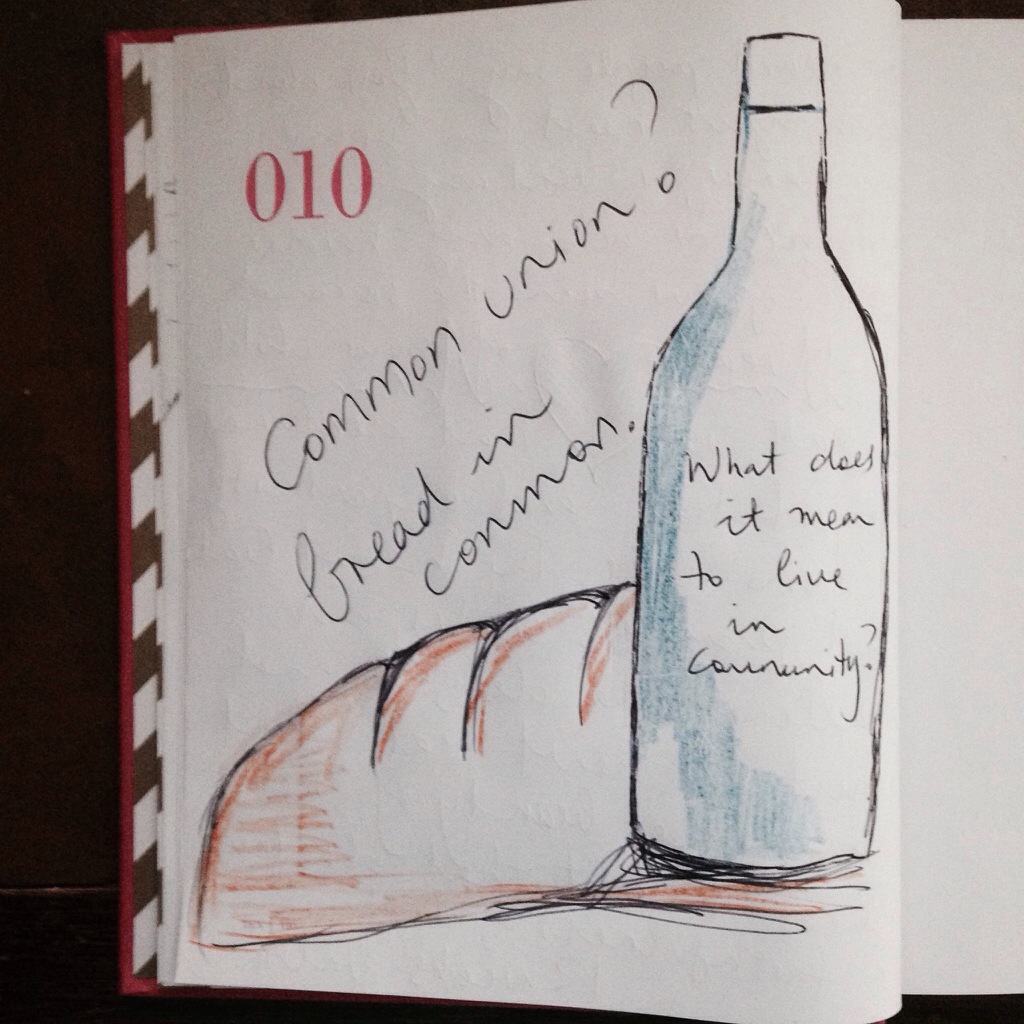 010
Common union?
bread in
common.
What does
it mean
to live
in
community?